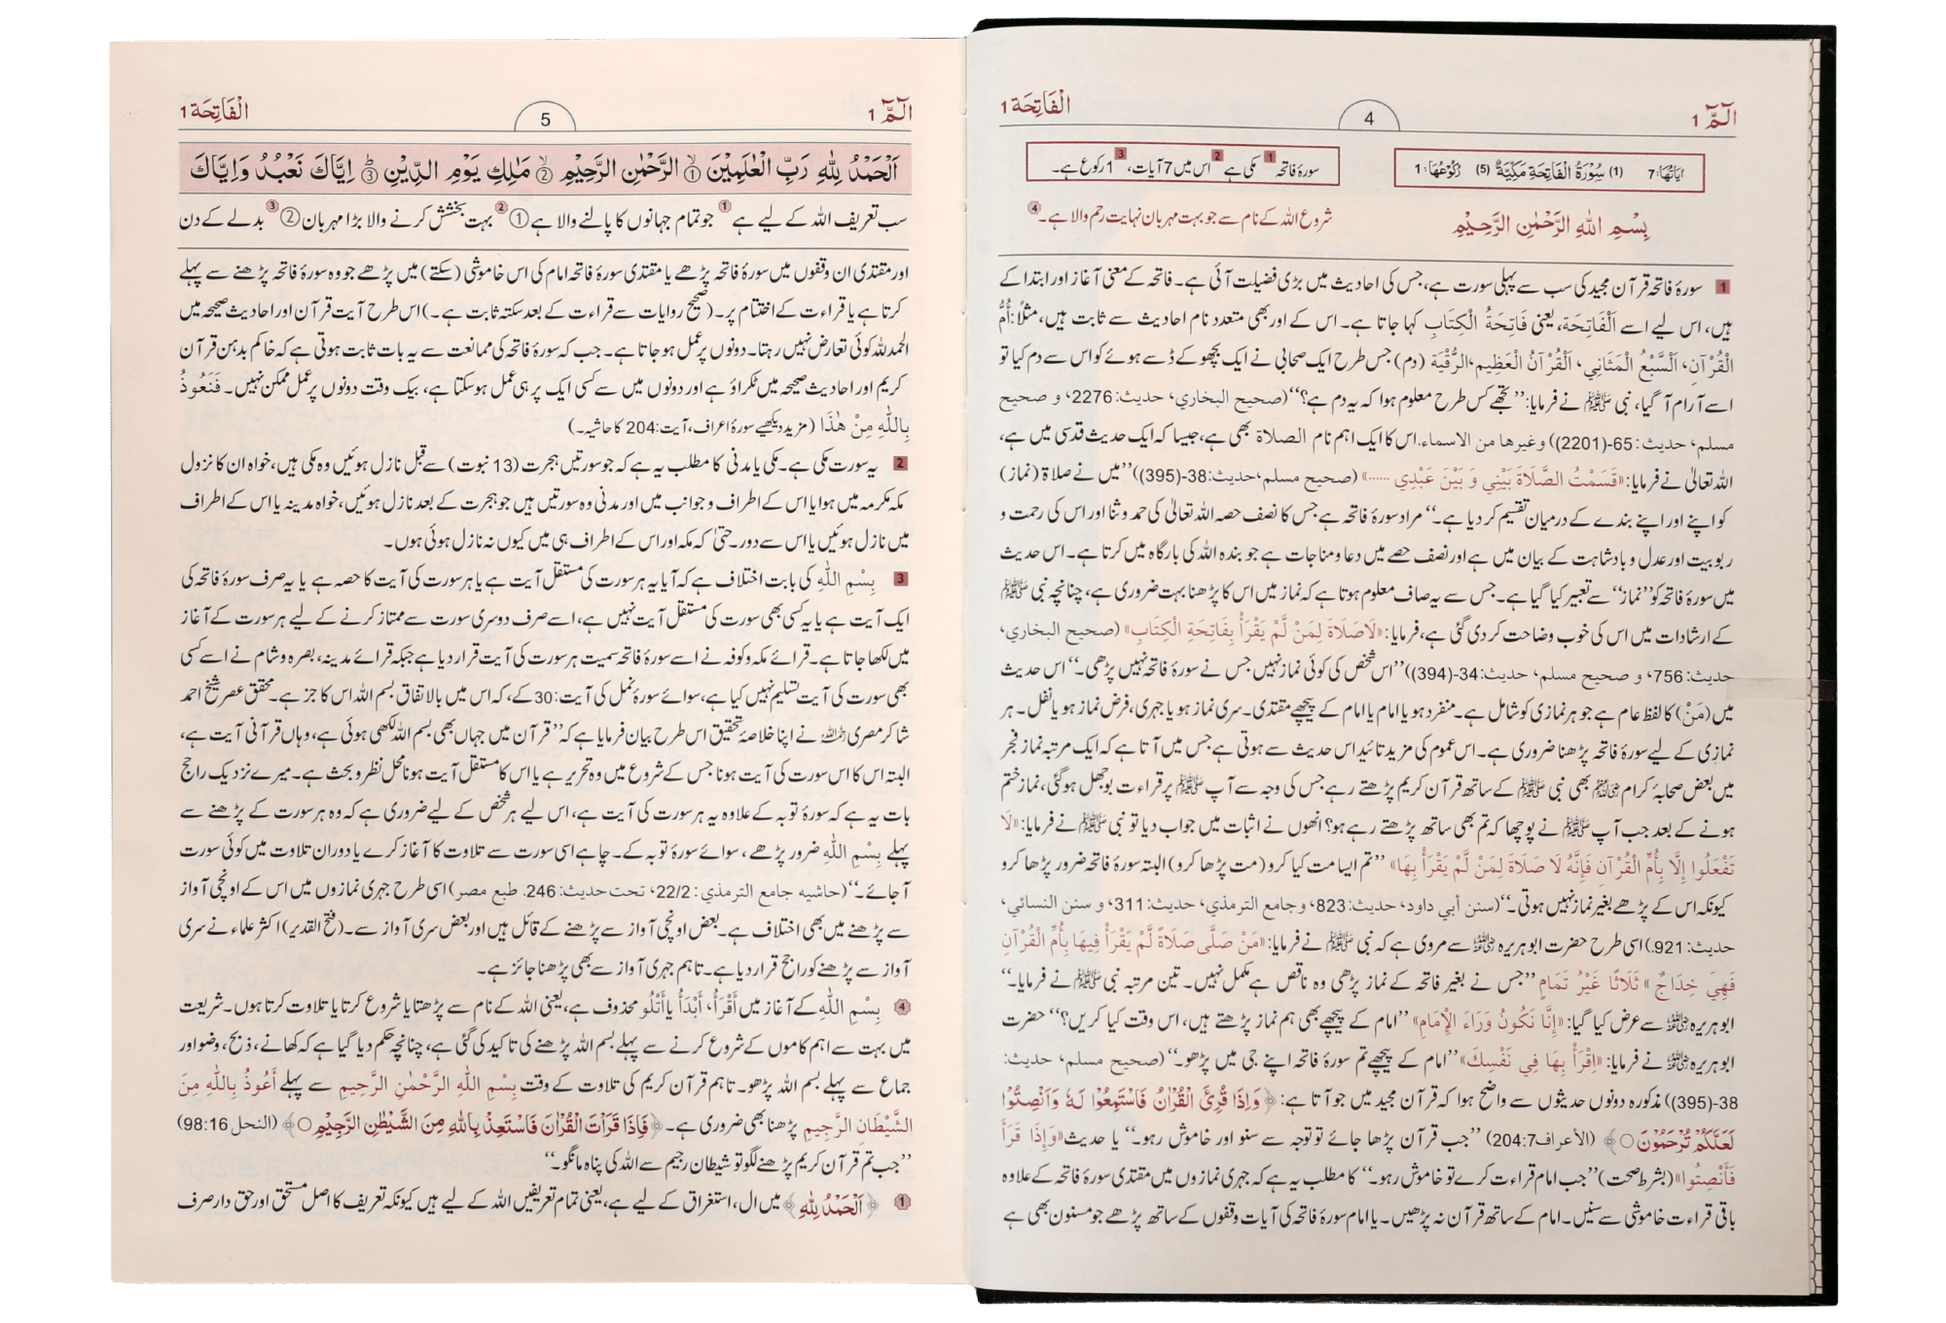 الٓمّٓ 1
4
الْفَاتِحَة 1
اٰیَاتُهَا: 7 (1) سُوْرَةُ الْفَاتِحَةِ مَكِّیَّةٌ (5) رُكُوْعُهَا: 1
سورۂ فاتحہ 1 مکی ہے 2 اس میں 7 آیات، 3 1 رکوع ہے۔
بِسْمِ اللهِ الرَّحْمٰنِ الرَّحِيْمِ
شروع اللہ کے نام سے جو بہت مہربان نہایت رحم والا ہے۔ 4
1 سورۂ فاتحہ قرآن مجید کی سب سے پہلی سورت ہے، جس کی احادیث میں بڑی فضیلت آئی ہے۔ فاتحہ کے معنی آغاز اور ابتدا کے
ہیں، اس لیے اسے اَلْفَاتِحَة، یعنی فَاتِحَةُ الْكِتَابِ کہا جاتا ہے۔ اس کے اور بھی متعدد نام احادیث سے ثابت ہیں، مثلاً: أُمُّ
الْقُرْآنِ، اَلسَّبْعُ الْمَثَانِي، اَلْقُرْآنُ الْعَظِيم، الرُّقْيَة (دم) جس طرح ایک صحابی نے ایک بچھو کے ڈسے ہوئے کو اس سے دم کیا تو
اسے آرام آ گیا، نبی ﷺ نے فرمایا: ’’تجھے کس طرح معلوم ہوا کہ یہ دم ہے؟‘‘ (صحيح البخاري، حديث: 2276، و صحيح
مسلم، حديث: 65-(2201)) وغيرها من الاسماء. اس کا ایک اہم نام الصلاة بھی ہے، جیسا کہ ایک حدیث قدسی میں ہے،
اللہ تعالیٰ نے فرمایا: «قَسَمْتُ الصَّلَاةَ بَيْنِي وَ بَيْنَ عَبْدِي ......» (صحيح مسلم،حديث: 38-(395)) ’’میں نے صلاة (نماز)
کو اپنے اور اپنے بندے کے درمیان تقسیم کر دیا ہے۔‘‘ مراد سورۂ فاتحہ ہے جس کا نصف حصہ اللہ تعالیٰ کی حمد و ثنا اور اس کی رحمت و
ربوبیت اور عدل و بادشاہت کے بیان میں ہے اور نصف حصے میں دعا و مناجات ہے جو بندہ اللہ کی بارگاہ میں کرتا ہے۔ اس حدیث
میں سورۂ فاتحہ کو ’’نماز‘‘ سے تعبیر کیا گیا ہے۔ جس سے یہ صاف معلوم ہوتا ہے کہ نماز میں اس کا پڑھنا بہت ضروری ہے، چنانچہ نبی ﷺ
کے ارشادات میں اس کی خوب وضاحت کر دی گئی ہے، فرمایا: «لَاصَلَاةَ لِمَنْ لَّمْ يَقْرَأْ بِفَاتِحَةِ الْكِتَابِ» (صحيح البخاري،
حديث: 756، و صحيح مسلم، حديث: 34-(394)) ’’اس شخص کی کوئی نماز نہیں جس نے سورۂ فاتحہ نہیں پڑھی۔‘‘ اس حدیث
میں (مَنْ) کا لفظ عام ہے جو ہر نمازی کو شامل ہے۔ منفرد ہو یا امام یا امام کے پیچھے مقتدی۔ سری نماز ہو یا جہری، فرض نماز ہو یا نفل۔ ہر
نمازی کے لیے سورۂ فاتحہ پڑھنا ضروری ہے۔ اس عموم کی مزید تائید اس حدیث سے ہوتی ہے جس میں آتا ہے کہ ایک مرتبہ نماز فجر
میں بعض صحابۂ کرام بھی نبی ﷺ کے ساتھ قرآن کریم پڑھتے رہے جس کی وجہ سے آپ ﷺ پر قراءت بوجھل ہو گئی، نماز ختم
ہونے کے بعد جب آپ ﷺ نے پوچھا کہ تم بھی ساتھ پڑھتے رہے ہو؟ انھوں نے اثبات میں جواب دیا تو نبی ﷺ نے فرمایا: «لَا
تَفْعَلُوا إِلَّا بِأُمِّ الْقُرْآنِ فَإِنَّهُ لَا صَلَاةَ لِمَنْ لَّمْ يَقْرَأْ بِهَا» ’’تم ایسا مت کیا کرو (مت پڑھا کرو) البتہ سورۂ فاتحہ ضرور پڑھا کرو
کیونکہ اس کے پڑھے بغیر نماز نہیں ہوتی۔‘‘ (سنن أبي داود، حديث: 823، وجامع الترمذي، حديث: 311، و سنن النسائي،
حديث: 921.) اسی طرح حضرت ابوہریرہ سے مروی ہے کہ نبی ﷺ نے فرمایا: «مَنْ صَلَّى صَلَاةً لَّمْ يَقْرَأْ فِيهَا بِأُمِّ الْقُرْآنِ
فَهِيَ خِدَاجٌ» ثَلَاثًا غَيْرُ تَمَامٍ ’’جس نے بغیر فاتحہ کے نماز پڑھی وہ ناقص ہے مکمل نہیں۔ تین مرتبہ نبی ﷺ نے فرمایا۔‘‘
ابوہریرہ سے عرض کیا گیا: «إِنَّا نَكُونُ وَرَاءَ الْإِمَامِ» ’’امام کے پیچھے بھی ہم نماز پڑھتے ہیں، اس وقت کیا کریں؟‘‘ حضرت
ابوہریرہ نے فرمایا: «اِقْرَأْ بِهَا فِي نَفْسِكَ» ’’امام کے پیچھے تم سورۂ فاتحہ اپنے جی میں پڑھو۔‘‘ (صحيح مسلم، حديث:
38-(395)) مذکورہ دونوں حدیثوں سے واضح ہوا کہ قرآن مجید میں جو آتا ہے: ﴿وَاِذَا قُرِئَ الْقُرْاٰنُ فَاسْتَمِعُوْا لَهٗ وَاَنْصِتُوْا
لَعَلَّكُمْ تُرْحَمُوْنَ﴾ (الأعراف 204:7) ’’جب قرآن پڑھا جائے تو توجہ سے سنو اور خاموش رہو۔‘‘ یا حدیث «وَإِذَا قَرَأَ
فَأَنْصِتُوا» (بشرط صحت) ’’جب امام قراءت کرے تو خاموش رہو۔‘‘ کا مطلب یہ ہے کہ جہری نمازوں میں مقتدی سورۂ فاتحہ کے علاوہ
باقی قراءت خاموشی سے سنیں۔ امام کے ساتھ قرآن نہ پڑھیں۔ یا امام سورۂ فاتحہ کی آیات وقفوں کے ساتھ پڑھے جو مسنون بھی ہے
الٓمّٓ 1
5
الْفَاتِحَة 1
اَلْحَمْدُ لِلّٰهِ رَبِّ الْعٰلَمِيْنَ ① الرَّحْمٰنِ الرَّحِيْمِ ② مٰلِكِ يَوْمِ الدِّيْنِ ③ اِيَّاكَ نَعْبُدُ وَاِيَّاكَ
سب تعریف اللہ کے لیے ہے 1 جو تمام جہانوں کا پالنے والا ہے ① 2 بہت بخشش کرنے والا بڑا مہربان ② 3 بدلے کے دن
اور مقتدی ان وقفوں میں سورۂ فاتحہ پڑھے یا مقتدی سورۂ فاتحہ امام کی اس خاموشی (سکتے) میں پڑھے جو وہ سورۂ فاتحہ پڑھنے سے پہلے
کرتا ہے یا قراءت کے اختتام پر۔ (صحیح روایات سے قراءت کے بعد سکتہ ثابت ہے۔) اس طرح آیت قرآن اور احادیث صحیحہ میں
الحمدللہ کوئی تعارض نہیں رہتا۔ دونوں پر عمل ہو جاتا ہے۔ جب کہ سورۂ فاتحہ کی ممانعت سے یہ بات ثابت ہوتی ہے کہ خاکم بدہن قرآن
کریم اور احادیث صحیحہ میں ٹکراؤ ہے اور دونوں میں سے کسی ایک پر ہی عمل ہو سکتا ہے، بیک وقت دونوں پر عمل ممکن نہیں۔ فَنَعُوذُ
بِاللّٰهِ مِنْ هٰذَا (مزید دیکھیے سورۂ اعراف، آیت: 204 کا حاشیہ۔)
2 یہ سورت مکی ہے۔ مکی یا مدنی کا مطلب یہ ہے کہ جو سورتیں ہجرت (13 نبوت) سے قبل نازل ہوئیں وہ مکی ہیں، خواہ ان کا نزول
مکہ مکرمہ میں ہوا یا اس کے اطراف و جوانب میں اور مدنی وہ سورتیں ہیں جو ہجرت کے بعد نازل ہوئیں، خواہ مدینہ یا اس کے اطراف
میں نازل ہوئیں یا اس سے دور۔ حتیٰ کہ مکہ اور اس کے اطراف ہی میں کیوں نہ نازل ہوئی ہوں۔
3 بِسْمِ اللّٰهِ کی بابت اختلاف ہے کہ آیا یہ ہر سورت کی مستقل آیت ہے یا ہر سورت کی آیت کا حصہ ہے یا یہ صرف سورۂ فاتحہ کی
ایک آیت ہے یا یہ کسی بھی سورت کی مستقل آیت نہیں ہے، اسے صرف دوسری سورت سے ممتاز کرنے کے لیے ہر سورت کے آغاز
میں لکھا جاتا ہے۔ قرائے مکہ و کوفہ نے اسے سورۂ فاتحہ سمیت ہر سورت کی آیت قرار دیا ہے جبکہ قرائے مدینہ، بصرہ و شام نے اسے کسی
بھی سورت کی آیت تسلیم نہیں کیا ہے، سوائے سورۂ نمل کی آیت: 30 کے، کہ اس میں بالاتفاق بسم اللہ اس کا جز ہے۔ محقق عصر شیخ احمد
شاکر مصری نے اپنا خلاصۂ تحقیق اس طرح بیان فرمایا ہے کہ ’’قرآن میں جہاں بھی بسم اللہ لکھی ہوئی ہے، وہاں قرآنی آیت ہے،
البتہ اس کا اس سورت کی آیت ہونا جس کے شروع میں وہ تحریر ہے یا اس کا مستقل آیت ہونا محل نظر و بحث ہے۔ میرے نزدیک راجح
بات یہ ہے کہ سورۂ توبہ کے علاوہ یہ ہر سورت کی آیت ہے، اس لیے ہر شخص کے لیے ضروری ہے کہ وہ ہر سورت کے پڑھنے سے
پہلے بِسْمِ اللّٰهِ ضرور پڑھے، سوائے سورۂ توبہ کے۔ چاہے اسی سورت سے تلاوت کا آغاز کرے یا دوران تلاوت میں کوئی سورت
آ جائے۔‘‘ (حاشيه جامع الترمذي: 22/2، تحت حديث: 246. طبع مصر) اسی طرح جہری نمازوں میں اس کے اونچی آواز
سے پڑھنے میں بھی اختلاف ہے۔ بعض اونچی آواز سے پڑھنے کے قائل ہیں اور بعض سری آواز سے۔ (فتح القدیر) اکثر علماء نے سری
آواز سے پڑھنے کو راجح قرار دیا ہے۔ تاہم جہری آواز سے بھی پڑھنا جائز ہے۔
4 بِسْمِ اللّٰهِ کے آغاز میں أَقْرَأُ، أَبْدَأُ یا أَتْلُو محذوف ہے، یعنی اللہ کے نام سے پڑھتا یا شروع کرتا یا تلاوت کرتا ہوں۔ شریعت
میں بہت سے اہم کاموں کے شروع کرنے سے پہلے بسم اللہ پڑھنے کی تاکید کی گئی ہے، چنانچہ حکم دیا گیا ہے کہ کھانے، ذبح، وضو اور
جماع سے پہلے بسم اللہ پڑھو۔ تاہم قرآن کریم کی تلاوت کے وقت بِسْمِ اللّٰهِ الرَّحْمٰنِ الرَّحِيمِ سے پہلے أَعُوذُ بِاللّٰهِ مِنَ
الشَّيْطَانِ الرَّجِيمِ پڑھنا بھی ضروری ہے۔ ﴿فَاِذَا قَرَاْتَ الْقُرْاٰنَ فَاسْتَعِذْ بِاللّٰهِ مِنَ الشَّيْطٰنِ الرَّجِيْمِ﴾ (النحل 98:16)
’’جب تم قرآن کریم پڑھنے لگو تو شیطان رجیم سے اللہ کی پناہ مانگو۔‘‘
1 ﴿اَلْحَمْدُ لِلّٰهِ﴾ میں ال، استغراق کے لیے ہے، یعنی تمام تعریفیں اللہ کے لیے ہیں کیونکہ تعریف کا اصل مستحق اور حق دار صرف